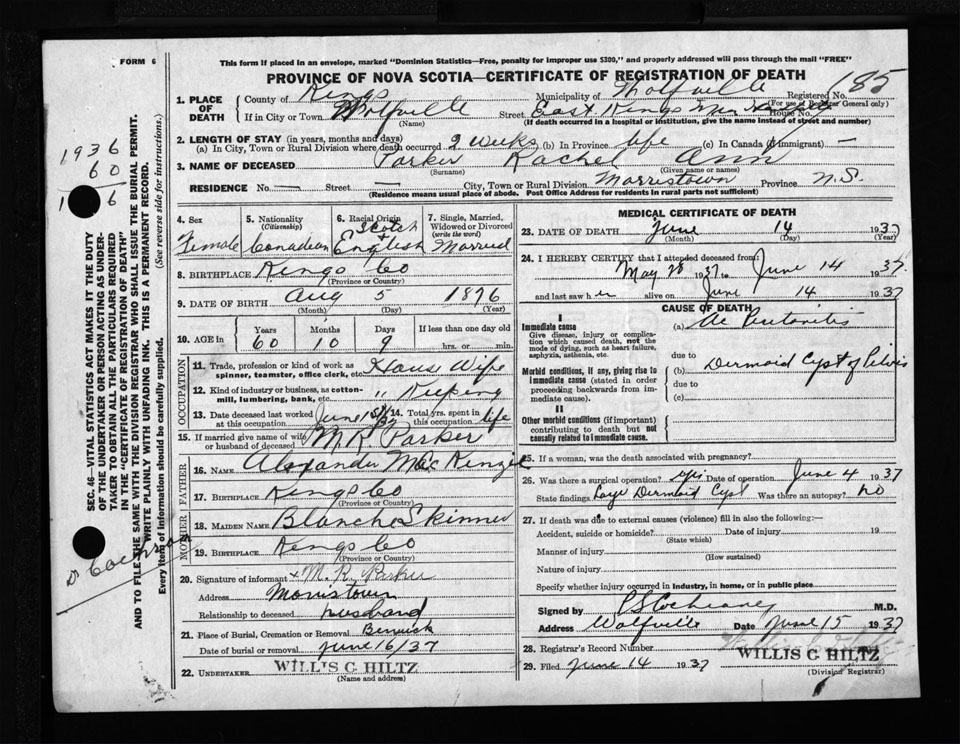 FORM 6
This form if placed in an envelope, marked "Dominion Statistics—Free, penalty for improper use $300," and properly addressed will pass through the mail "FREE"
PROVINCE OF NOVA SCOTIA—CERTIFICATE OF REGISTRATION OF DEATH
185
1. PLACE OF DEATH
County of Kings Municipality of Wolfville Registered No.
(For use of Registrar General only)
If in City or Town Wolfville Street East Kings House No.
(Name) (If death occurred in a hospital or institution, give the name instead of street and number)
2. LENGTH OF STAY (in years, months and days)
(a) In City, Town or Rural Division where death occurred 2 weeks (b) In Province life (c) In Canada (if immigrant) —
3. NAME OF DECEASED Parker Rachel Ann
(Surname) (Given name or names)
RESIDENCE No. — Street — City, Town or Rural Division Morristown Province N.S.
(Residence means usual place of abode. Post Office Address for residents in rural parts not sufficient)
1936
60
SEC. 46—VITAL STATISTICS ACT MAKES IT THE DUTY
OF THE UNDERTAKER OR PERSON ACTING AS UNDER-
TAKER TO OBTAIN ALL THE PARTICULARS REQUIRED
IN THE "CERTIFICATE OF REGISTRATION OF DEATH"
AND TO FILE THE SAME WITH THE DIVISION REGISTRAR WHO SHALL ISSUE THE BURIAL PERMIT.
WRITE PLAINLY WITH UNFADING INK. THIS IS A PERMANENT RECORD.
Every item of information should be carefully supplied. (See reverse side for instructions.)
Dr Cochran
4. Sex
Female
5. Nationality
(Citizenship)
Canadian
6. Racial Origin
Scotch +
English
7. Single, Married,
Widowed or Divorced
(write the word)
Married
8. BIRTHPLACE Kings Co
(Province or Country)
9. DATE OF BIRTH Aug 5 1876
(Month) (Day) (Year)
10. AGE IN
Years Months Days If less than one day old
60 10 9 hrs. or min.
OCCUPATION
11. Trade, profession or kind of work as
spinner, teamster, office clerk, etc. House Wife
12. Kind of industry or business, as cotton-
mill, lumbering, bank, etc. " Keeping
13. Date deceased last worked
at this occupation June 1st/37
14. Total yrs. spent in
this occupation life
15. If married give name of wife
or husband of deceased M R Parker
FATHER
16. NAME Alexander MacKenzie
17. BIRTHPLACE Kings Co
(Province or Country)
MOTHER
18. MAIDEN NAME Blanche Skinner
19. BIRTHPLACE Kings Co
(Province or Country)
20. Signature of informant x M. R. Parker
Address Morristown
Relationship to deceased husband
21. Place of Burial, Cremation or Removal Berwick
Date of burial or removal June 16/37
22. UNDERTAKER WILLIS C HILTZ
(Name and address)
MEDICAL CERTIFICATE OF DEATH
23. DATE OF DEATH June 14 1937
(Month) (Day) (Year)
24. I HEREBY CERTIFY that I attended deceased from:
May 28 1937 to June 14 1937
and last saw her alive on June 14 1937
CAUSE OF DEATH
I
Immediate cause
Give disease, injury or complica-
tion which caused death, not the
mode of dying, such as heart failure,
asphyxia, asthenia, etc.
(a) Ac Peritonitis
due to
Morbid conditions, if any, giving rise to
immediate cause (stated in order
proceeding backwards from im-
mediate cause).
(b) Dermoid Cyst of Pelvis
due to
(c)
II
Other morbid conditions (if important)
contributing to death but not
causally related to immediate cause.
25. If a woman, was the death associated with pregnancy?
26. Was there a surgical operation? yes Date of operation June 4 1937
State findings Large Dermoid Cyst Was there an autopsy? no
27. If death was due to external causes (violence) fill in also the following:—
Accident, suicide or homicide? Date of injury 19
(State which)
Manner of injury
(How sustained)
Nature of injury
Specify whether injury occurred in industry, in home, or in public place
Signed by M.D.
Address Wolfville Date June 15 1937
28. Registrar's Record Number
WILLIS C HILTZ
29. Filed June 14 1937
(Division Registrar)